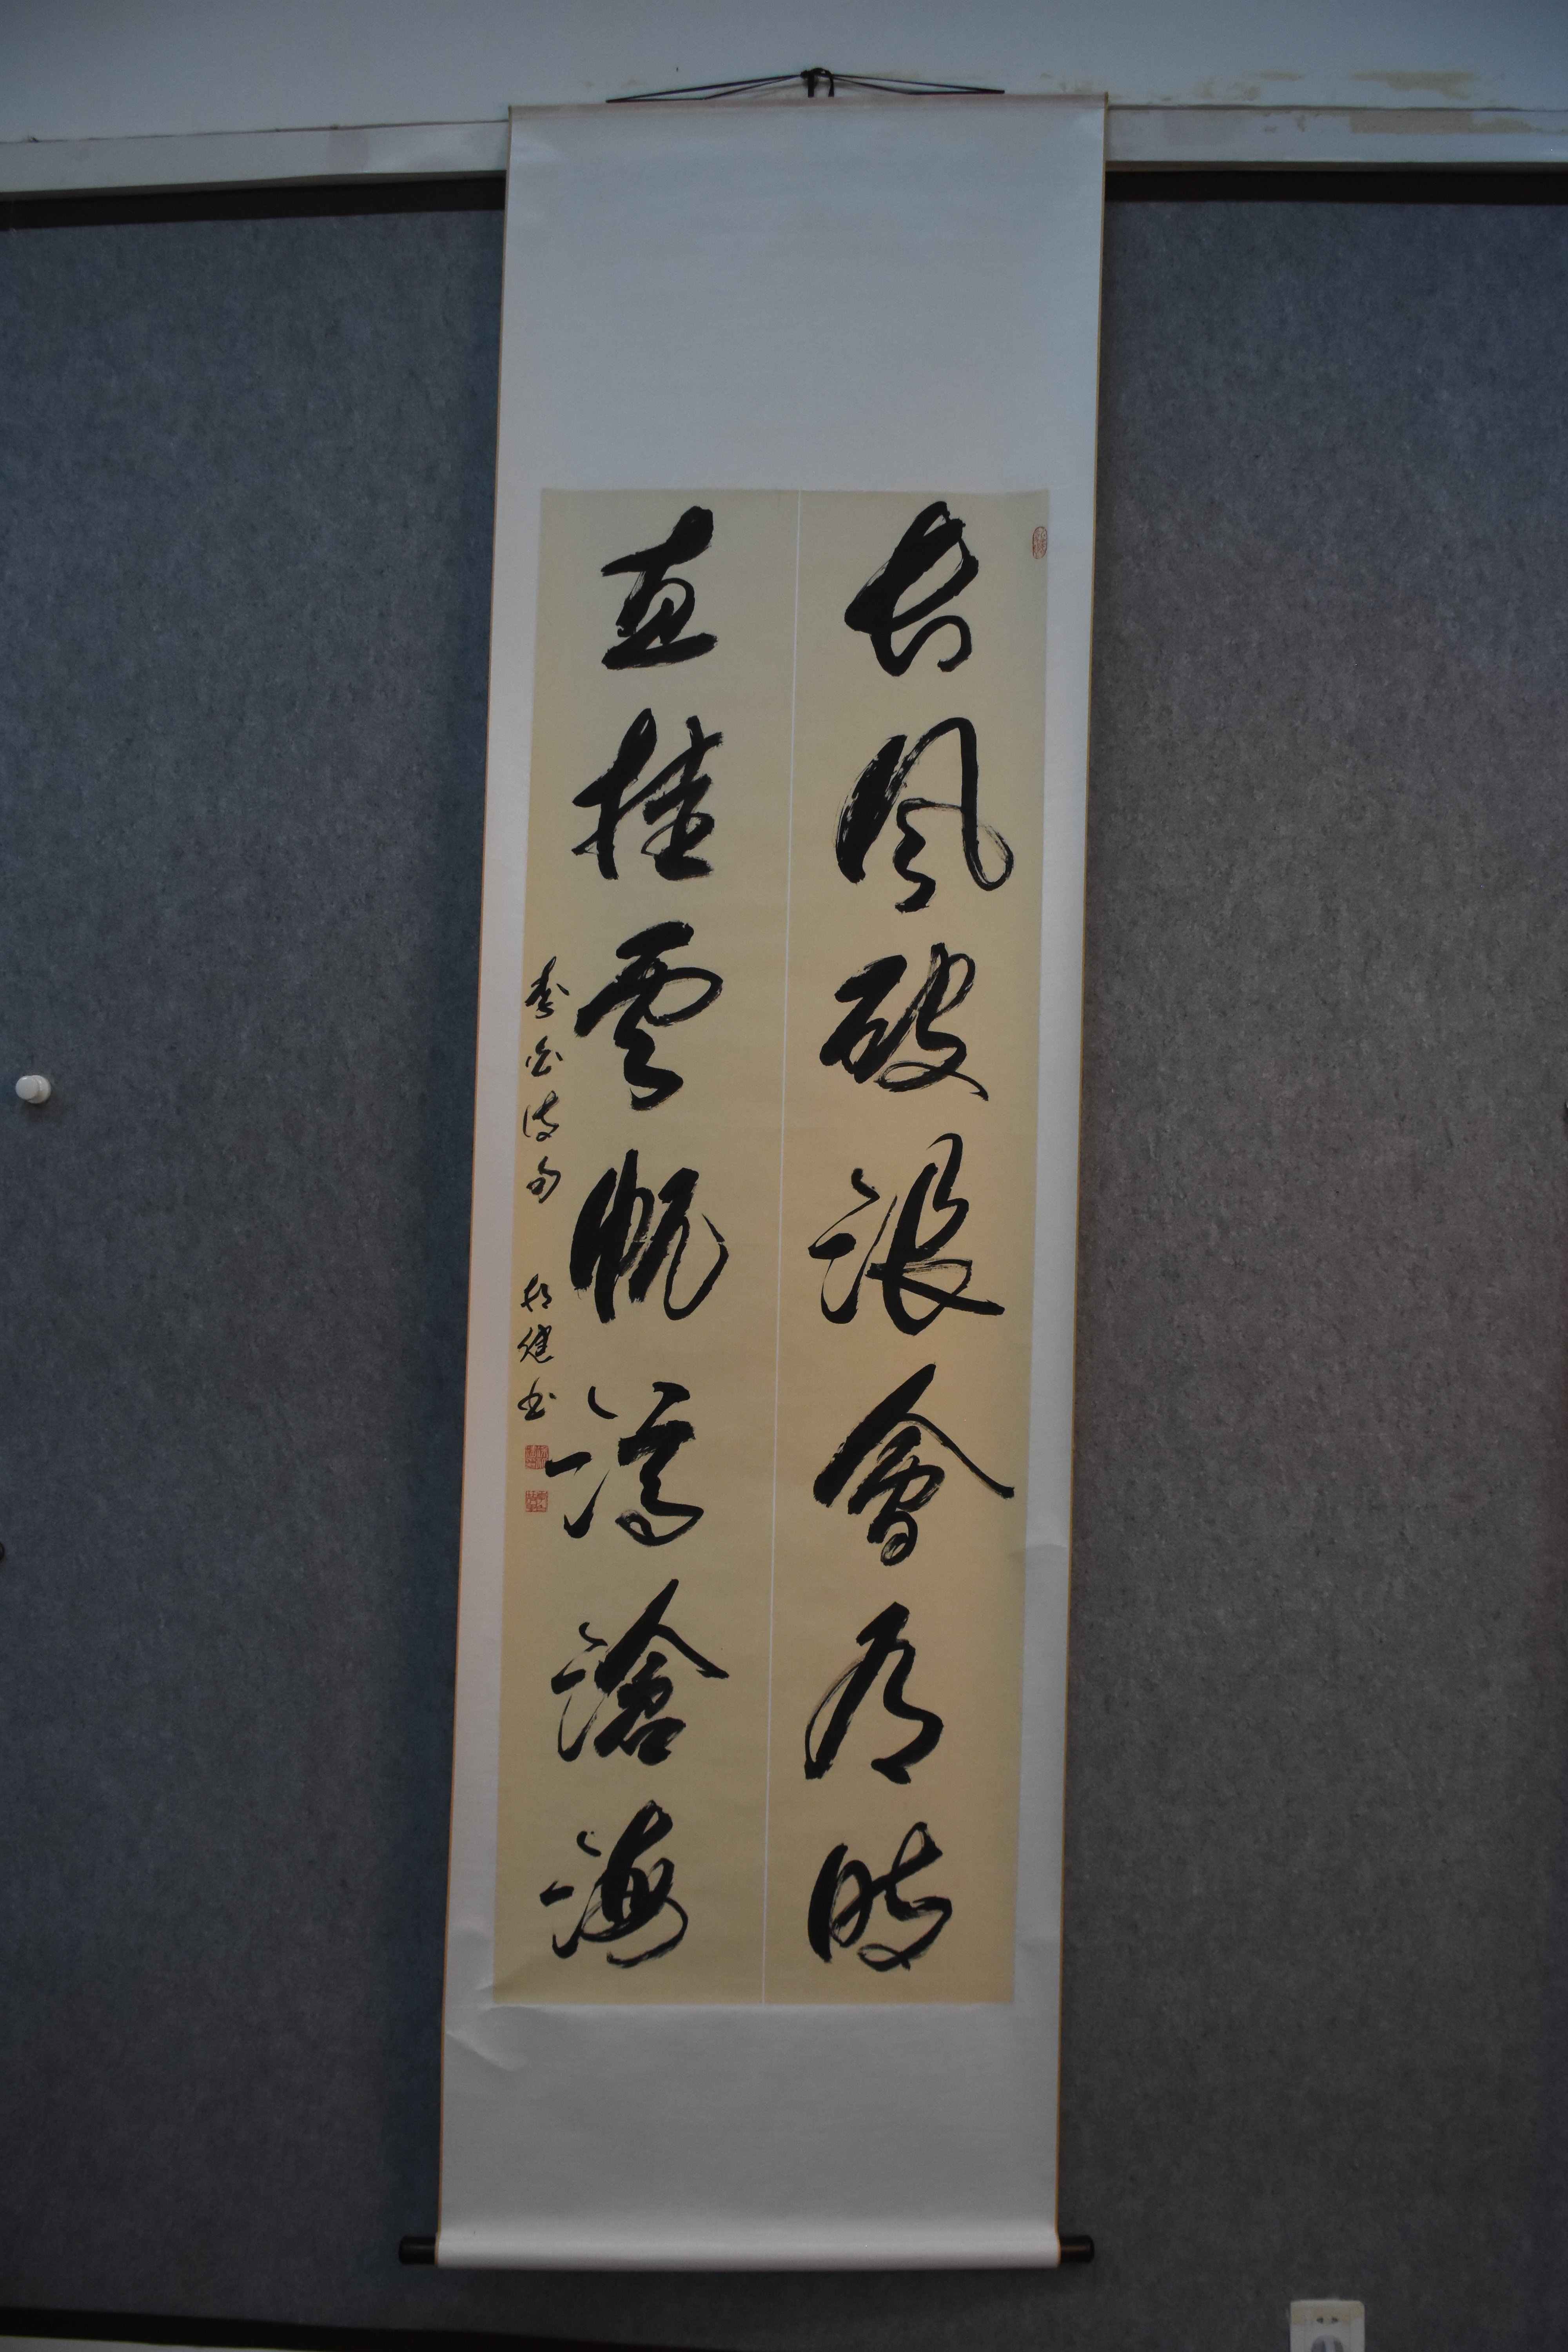 长风破浪會有時
直挂雲帆濟滄海
李白詩句
健书